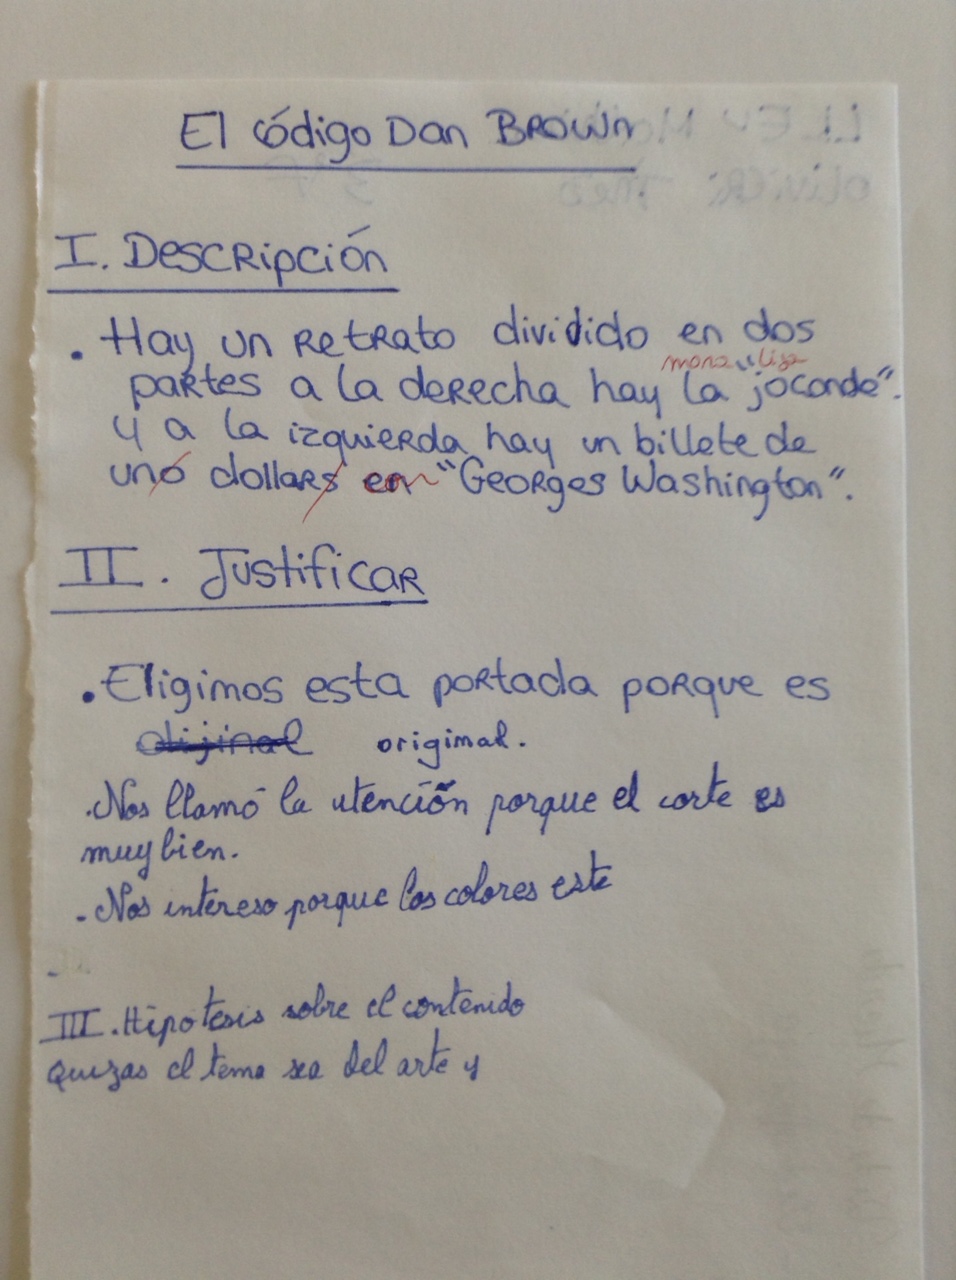 El código Dan BROWN
I. Descripción
. Hay un retrato dividido en dos
mona "liza
partes a la derecha hay la "joconde".
y a la izquierda hay un billete de
uno dollars en "Georges Washington".
II. Justificar
. Eligimos esta portada porque es
original.
. Nos llamó la atención porque el corte es
muy bien.
- Nos intereso porque los colores este
-
III. Hipotesis sobre el contenido
quizas el tema sea del arte y